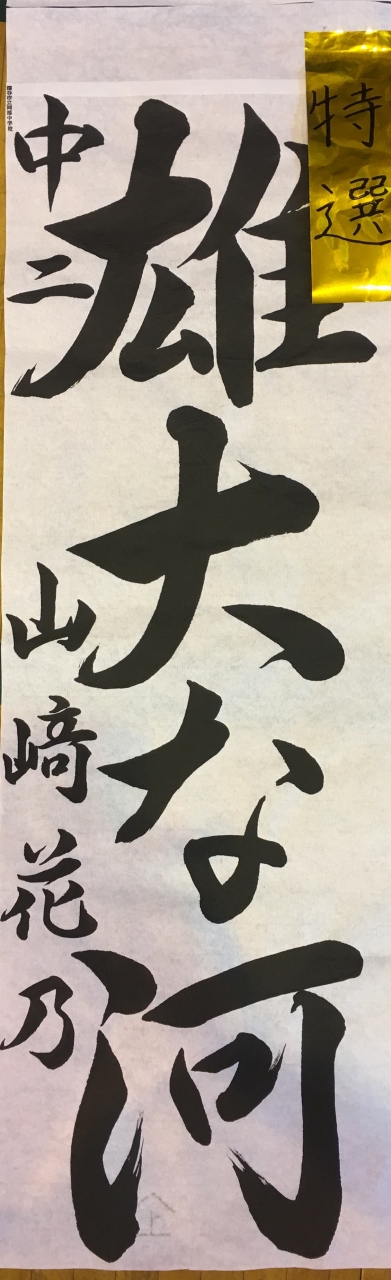 特選
雄大な河
中二 山﨑花乃